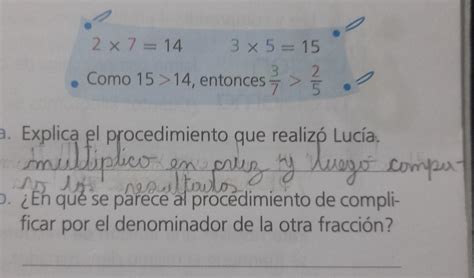 2 × 7 = 14 3 × 5 = 15
Como 15 > 14, entonces 3/7 > 2/5
a. Explica el procedimiento que realizó Lucía.
multiplico en cruz y luego compa-
ro los resultados
b. ¿En qué se parece al procedimiento de compli-
ficar por el denominador de la otra fracción?